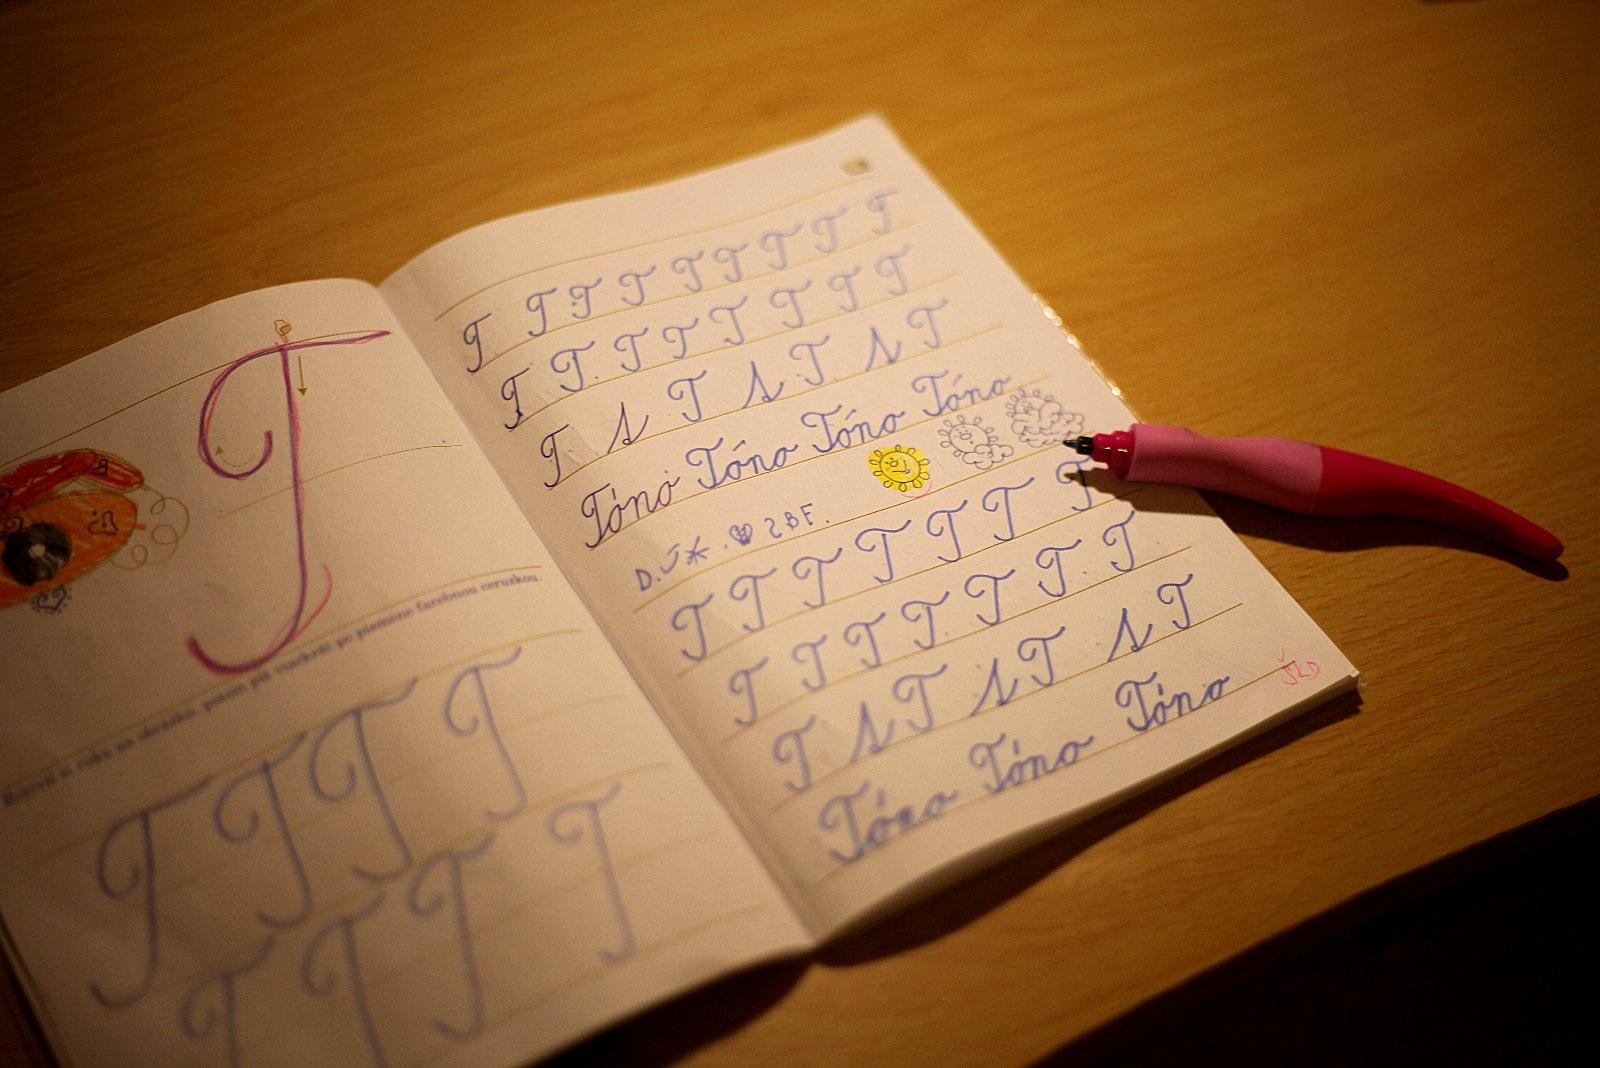 T
Rozcvič si ruku na obrázku, potom píš viackrát po písmene farebnou ceruzkou.
T T T T
T T T T
T T T T T T T T T
T T T T T T T T
T S T S T S T
Tóno Tóno Tóno Tóno
D.Ú
T T T T T T T
T T T T T T T
T S T S T S T
Tóno Tóno Tóno
ŠKD